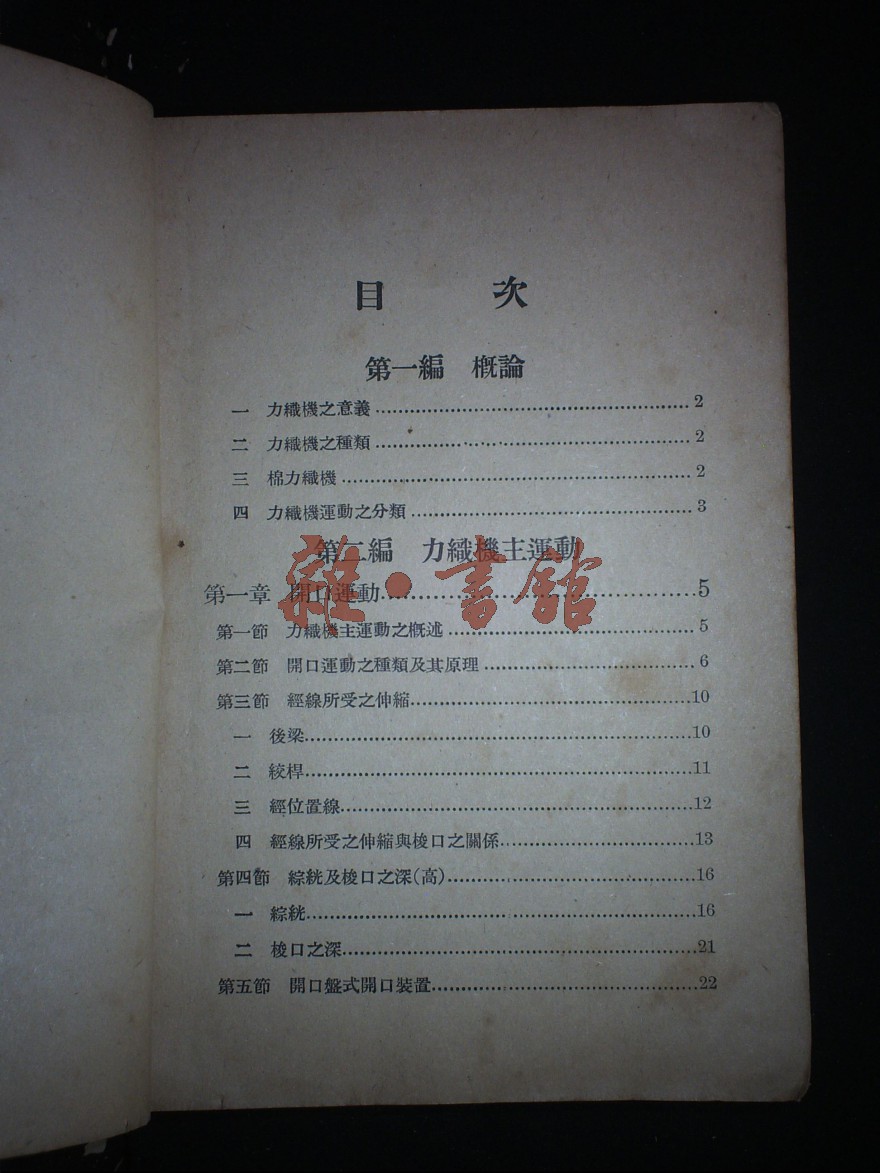 目 次
第一編 概論
一 力織機之意義 2
二 力織機之種類 2
三 棉力織機 2
四 力織機運動之分類 3
第二編 力織機主運動
雜·書館
第一章 開口運動 5
第一節 力織機主運動之概述 5
第二節 開口運動之種類及其原理 6
第三節 經線所受之伸縮 10
一 後梁 10
二 絞桿 11
三 經位置線 12
四 經線所受之伸縮與梭口之關係 13
第四節 綜絖及梭口之深(高) 16
一 綜絖 16
二 梭口之深 21
第五節 開口盤式開口裝置 22